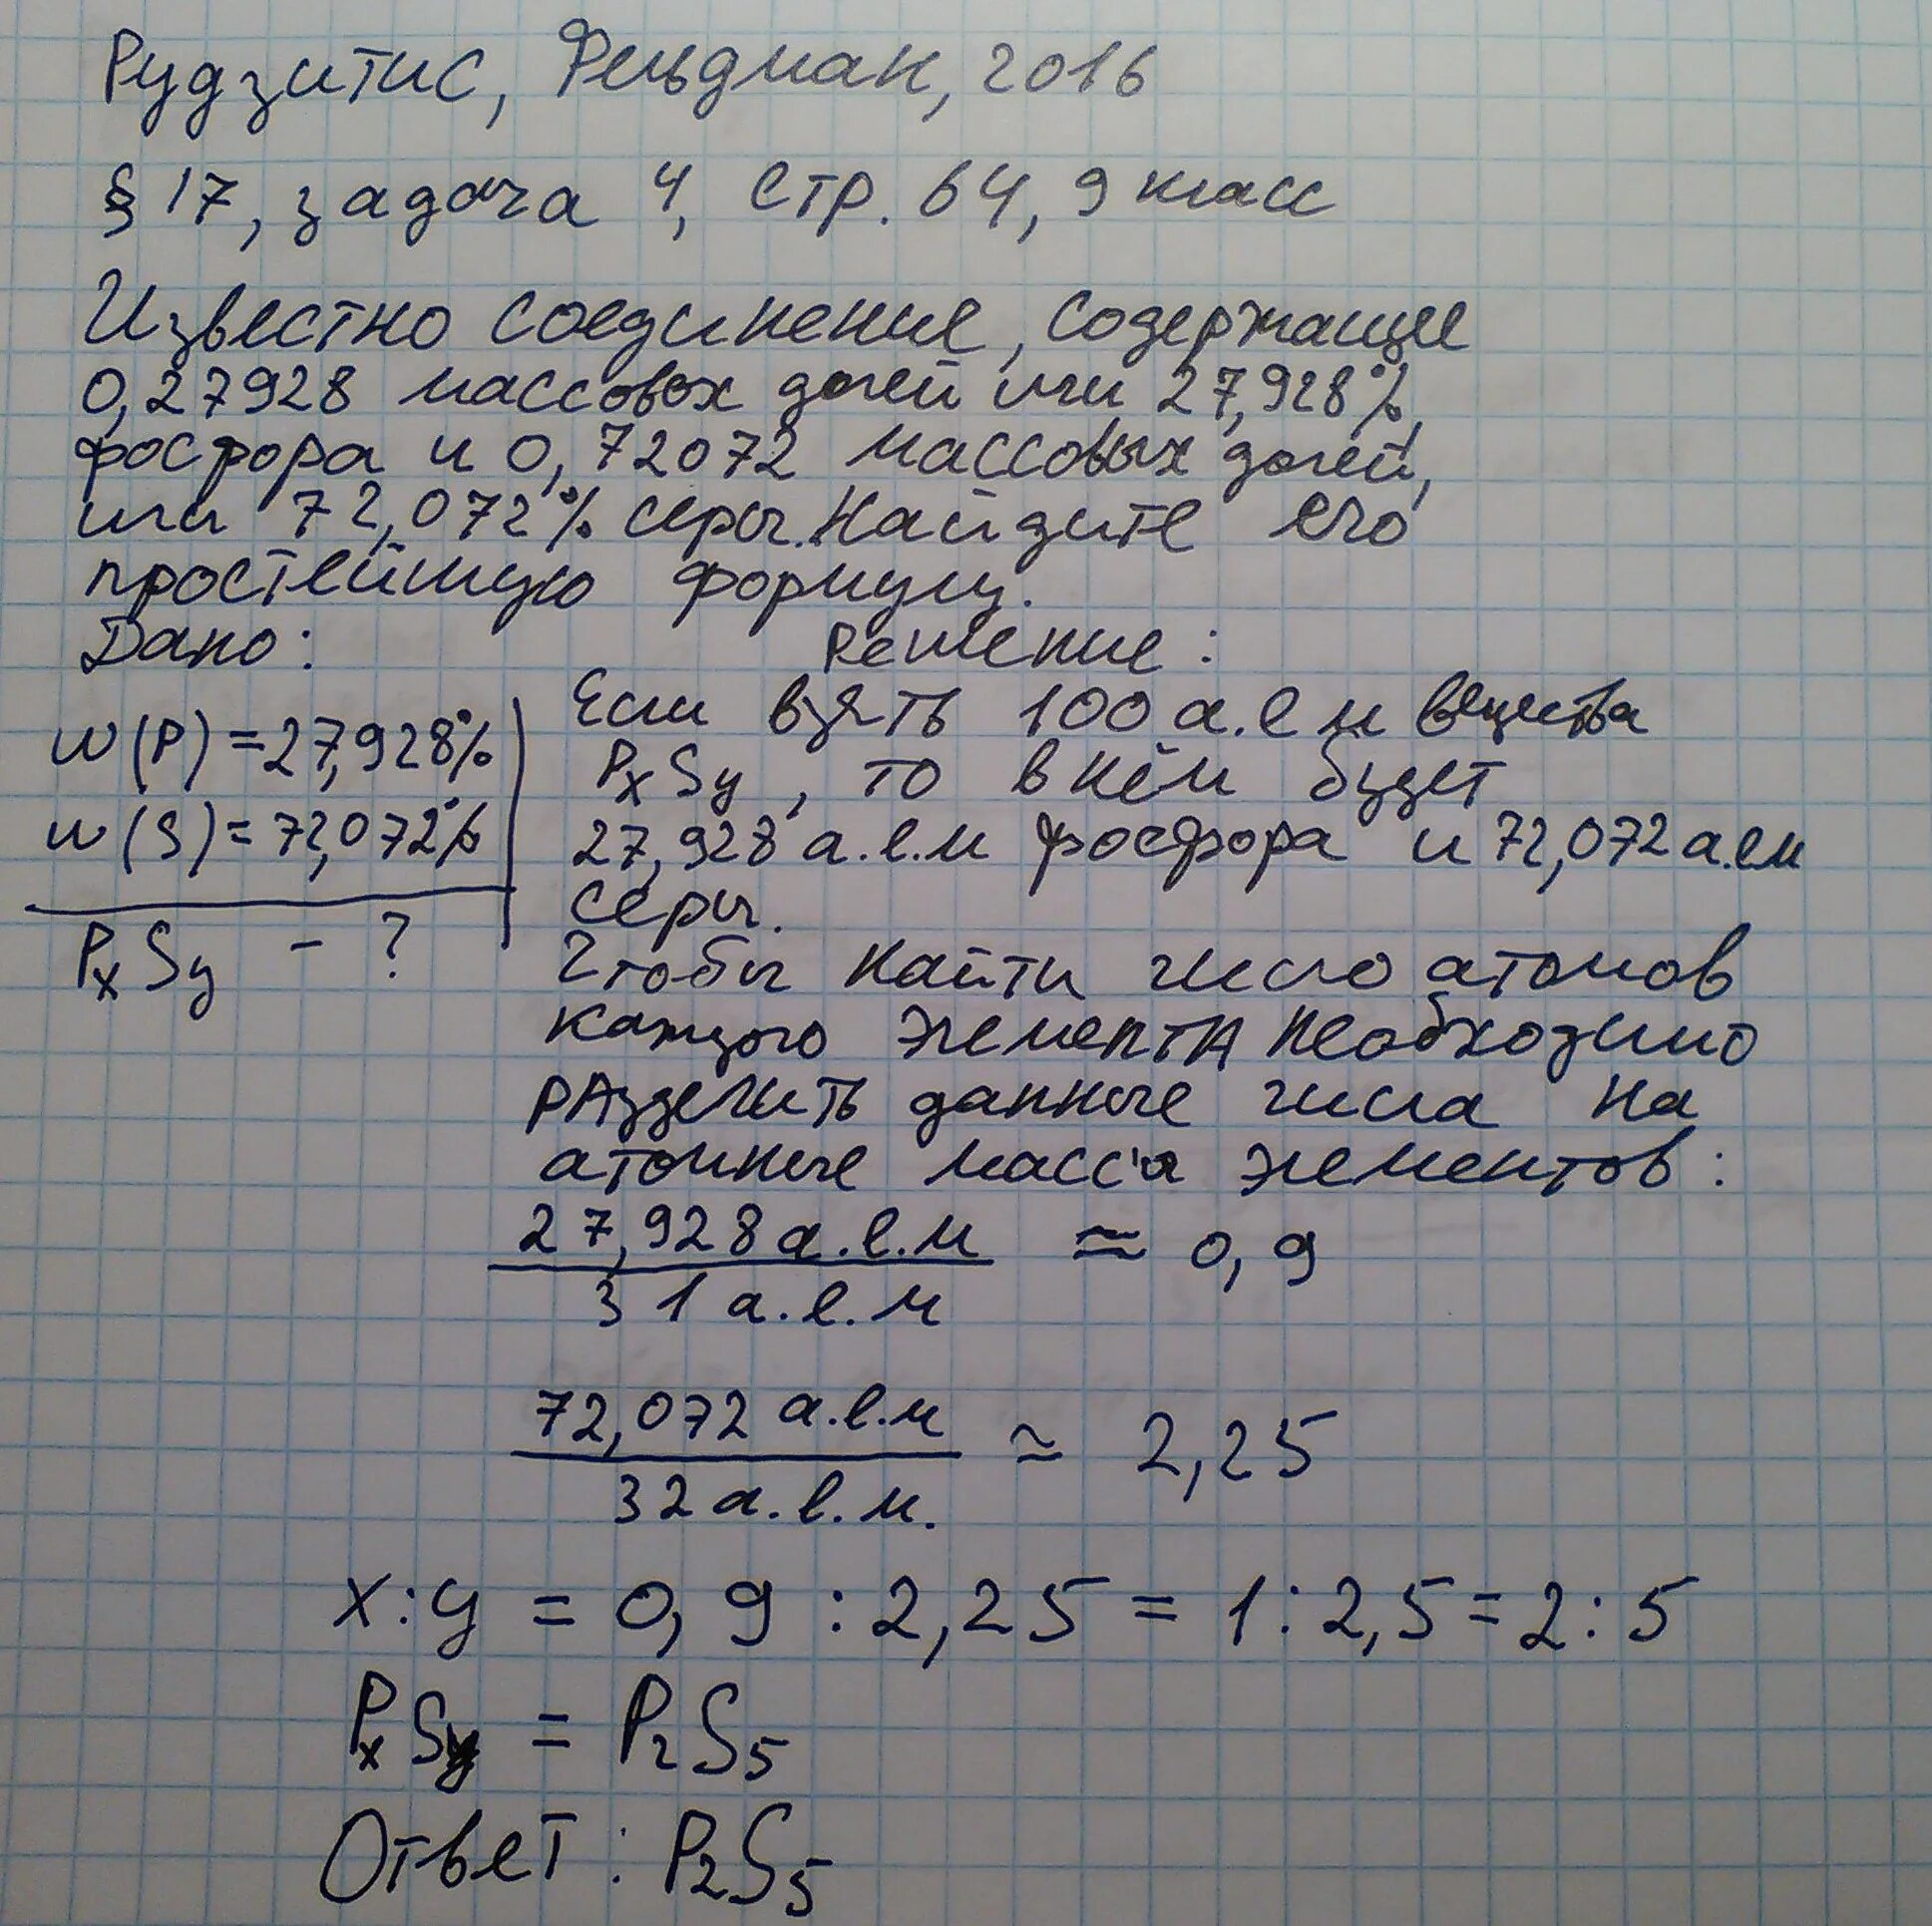 Рудзитис, Фельдман, 2016
§ 17, задача 4, стр. 64, 9 класс
Известно соединение, содержащее
0,27928 массовых долей или 27,928%,
фосфора и 0,72072 массовых долей,
или 72,072% серы. Найдите его
простейшую формулу.
Дано:
w(P) = 27,928%
w(S) = 72,072%
PxSy - ?
Решение:
Если взять 100 а.е м вещества
PxSy, то в нём будет
27,928 а.е.м фосфора и 72,072 а.ем
серы.
Чтобы найти число атомов
каждого элемента необходимо
разделить данные числа на
атомные массы элементов:
27,928 а.е.м / 31 а.е.м ≈ 0,9
72,072 а.е.м / 32 а.е.м. ≈ 2,25
x:y = 0,9 : 2,25 = 1:2,5 = 2:5
PxSy = P2S5
Ответ: P2S5